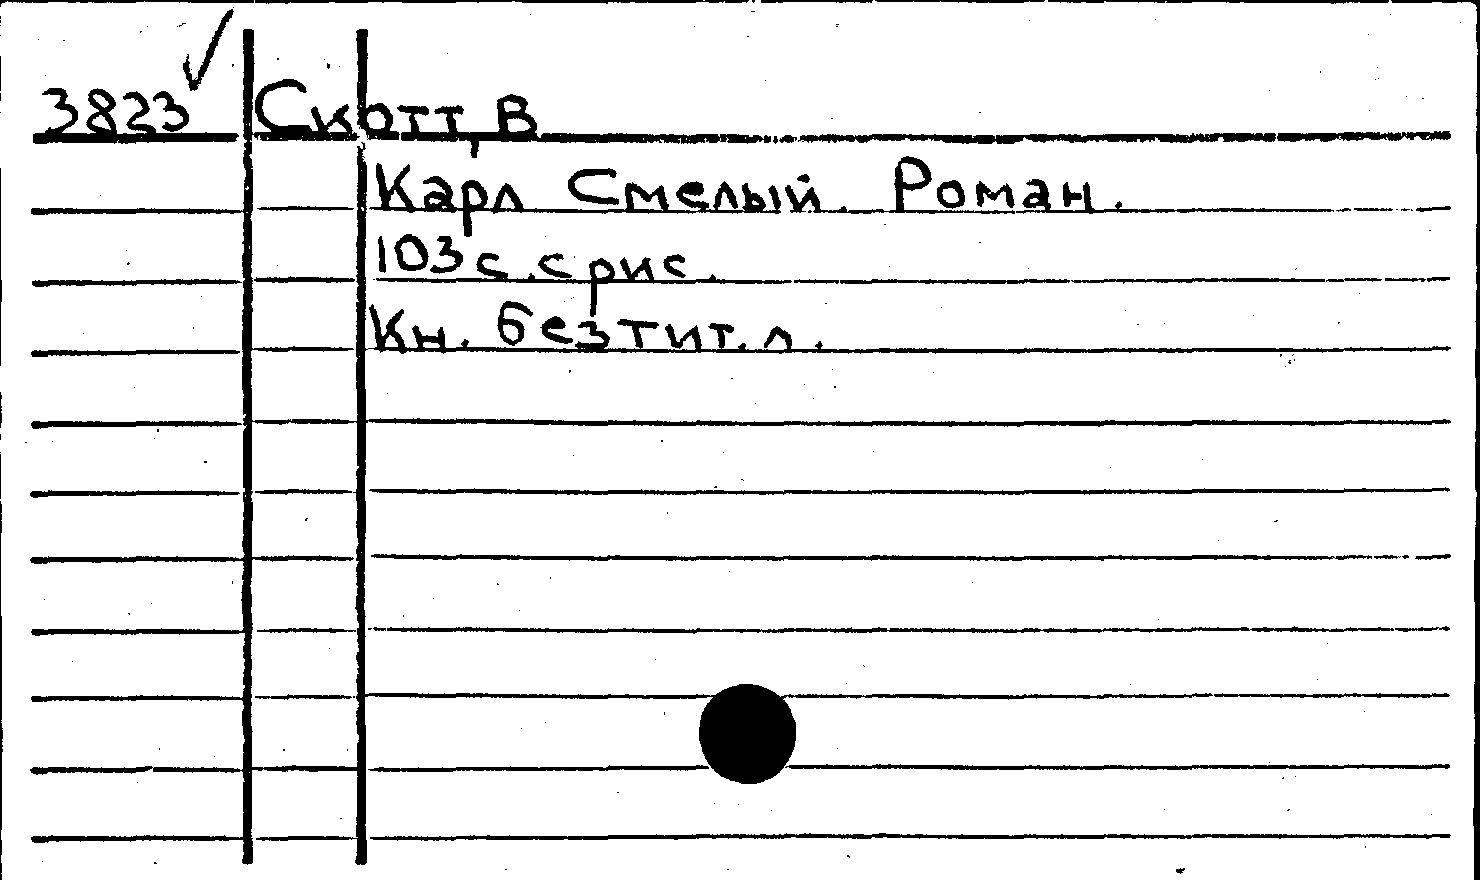 3823 Скотт, В
Карл Смелый. Роман.
103 с. с рис.
Кн. без тит. л.